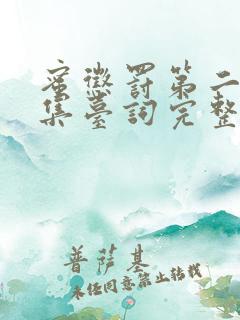 蜜懲罰第二
集臺詞完整
菩薩基
未经同意禁止转载